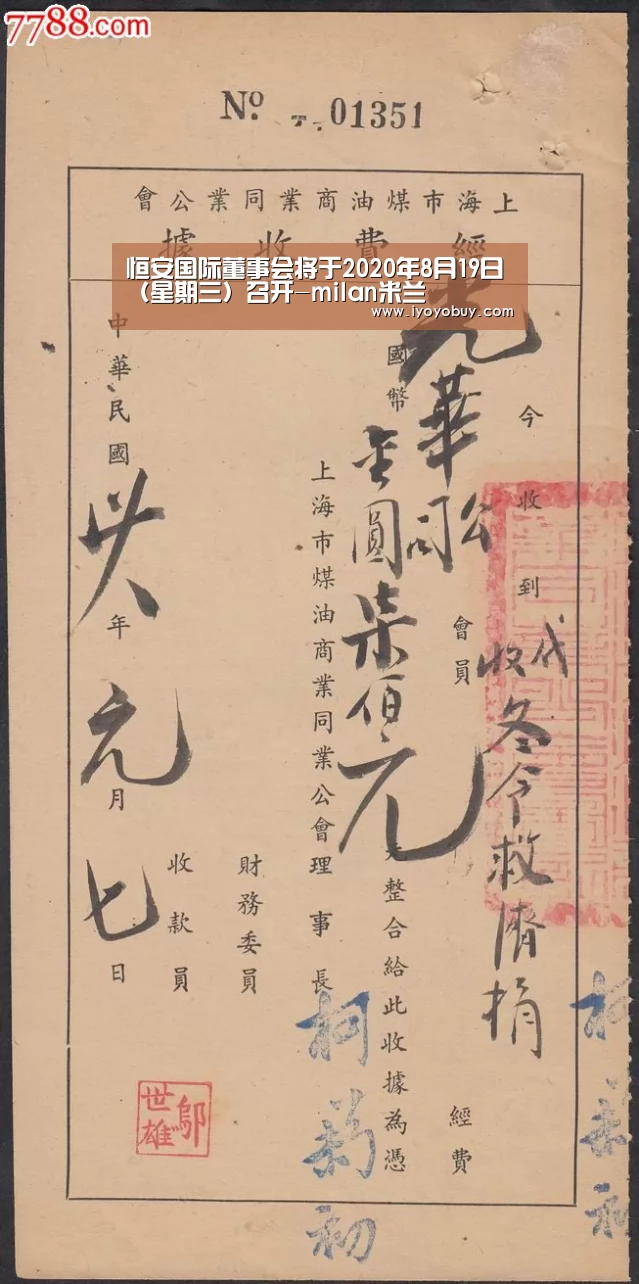 7788.com
No. T. 01351
上海市煤油商業同業公會
經費收據
恒安国际董事会将于2020年8月19日
（星期三）召开-milan米兰
www.iyoyobuy.com
今收到
代收冬令救濟捐
經費
光華公司
會員
國幣金圓柒佰元
整合給此收據為憑
上海市煤油商業同業公會理事長
柯菊初
財務委員
收款員
中華民國卅八年元月七日
鄔世雄
柯菊初